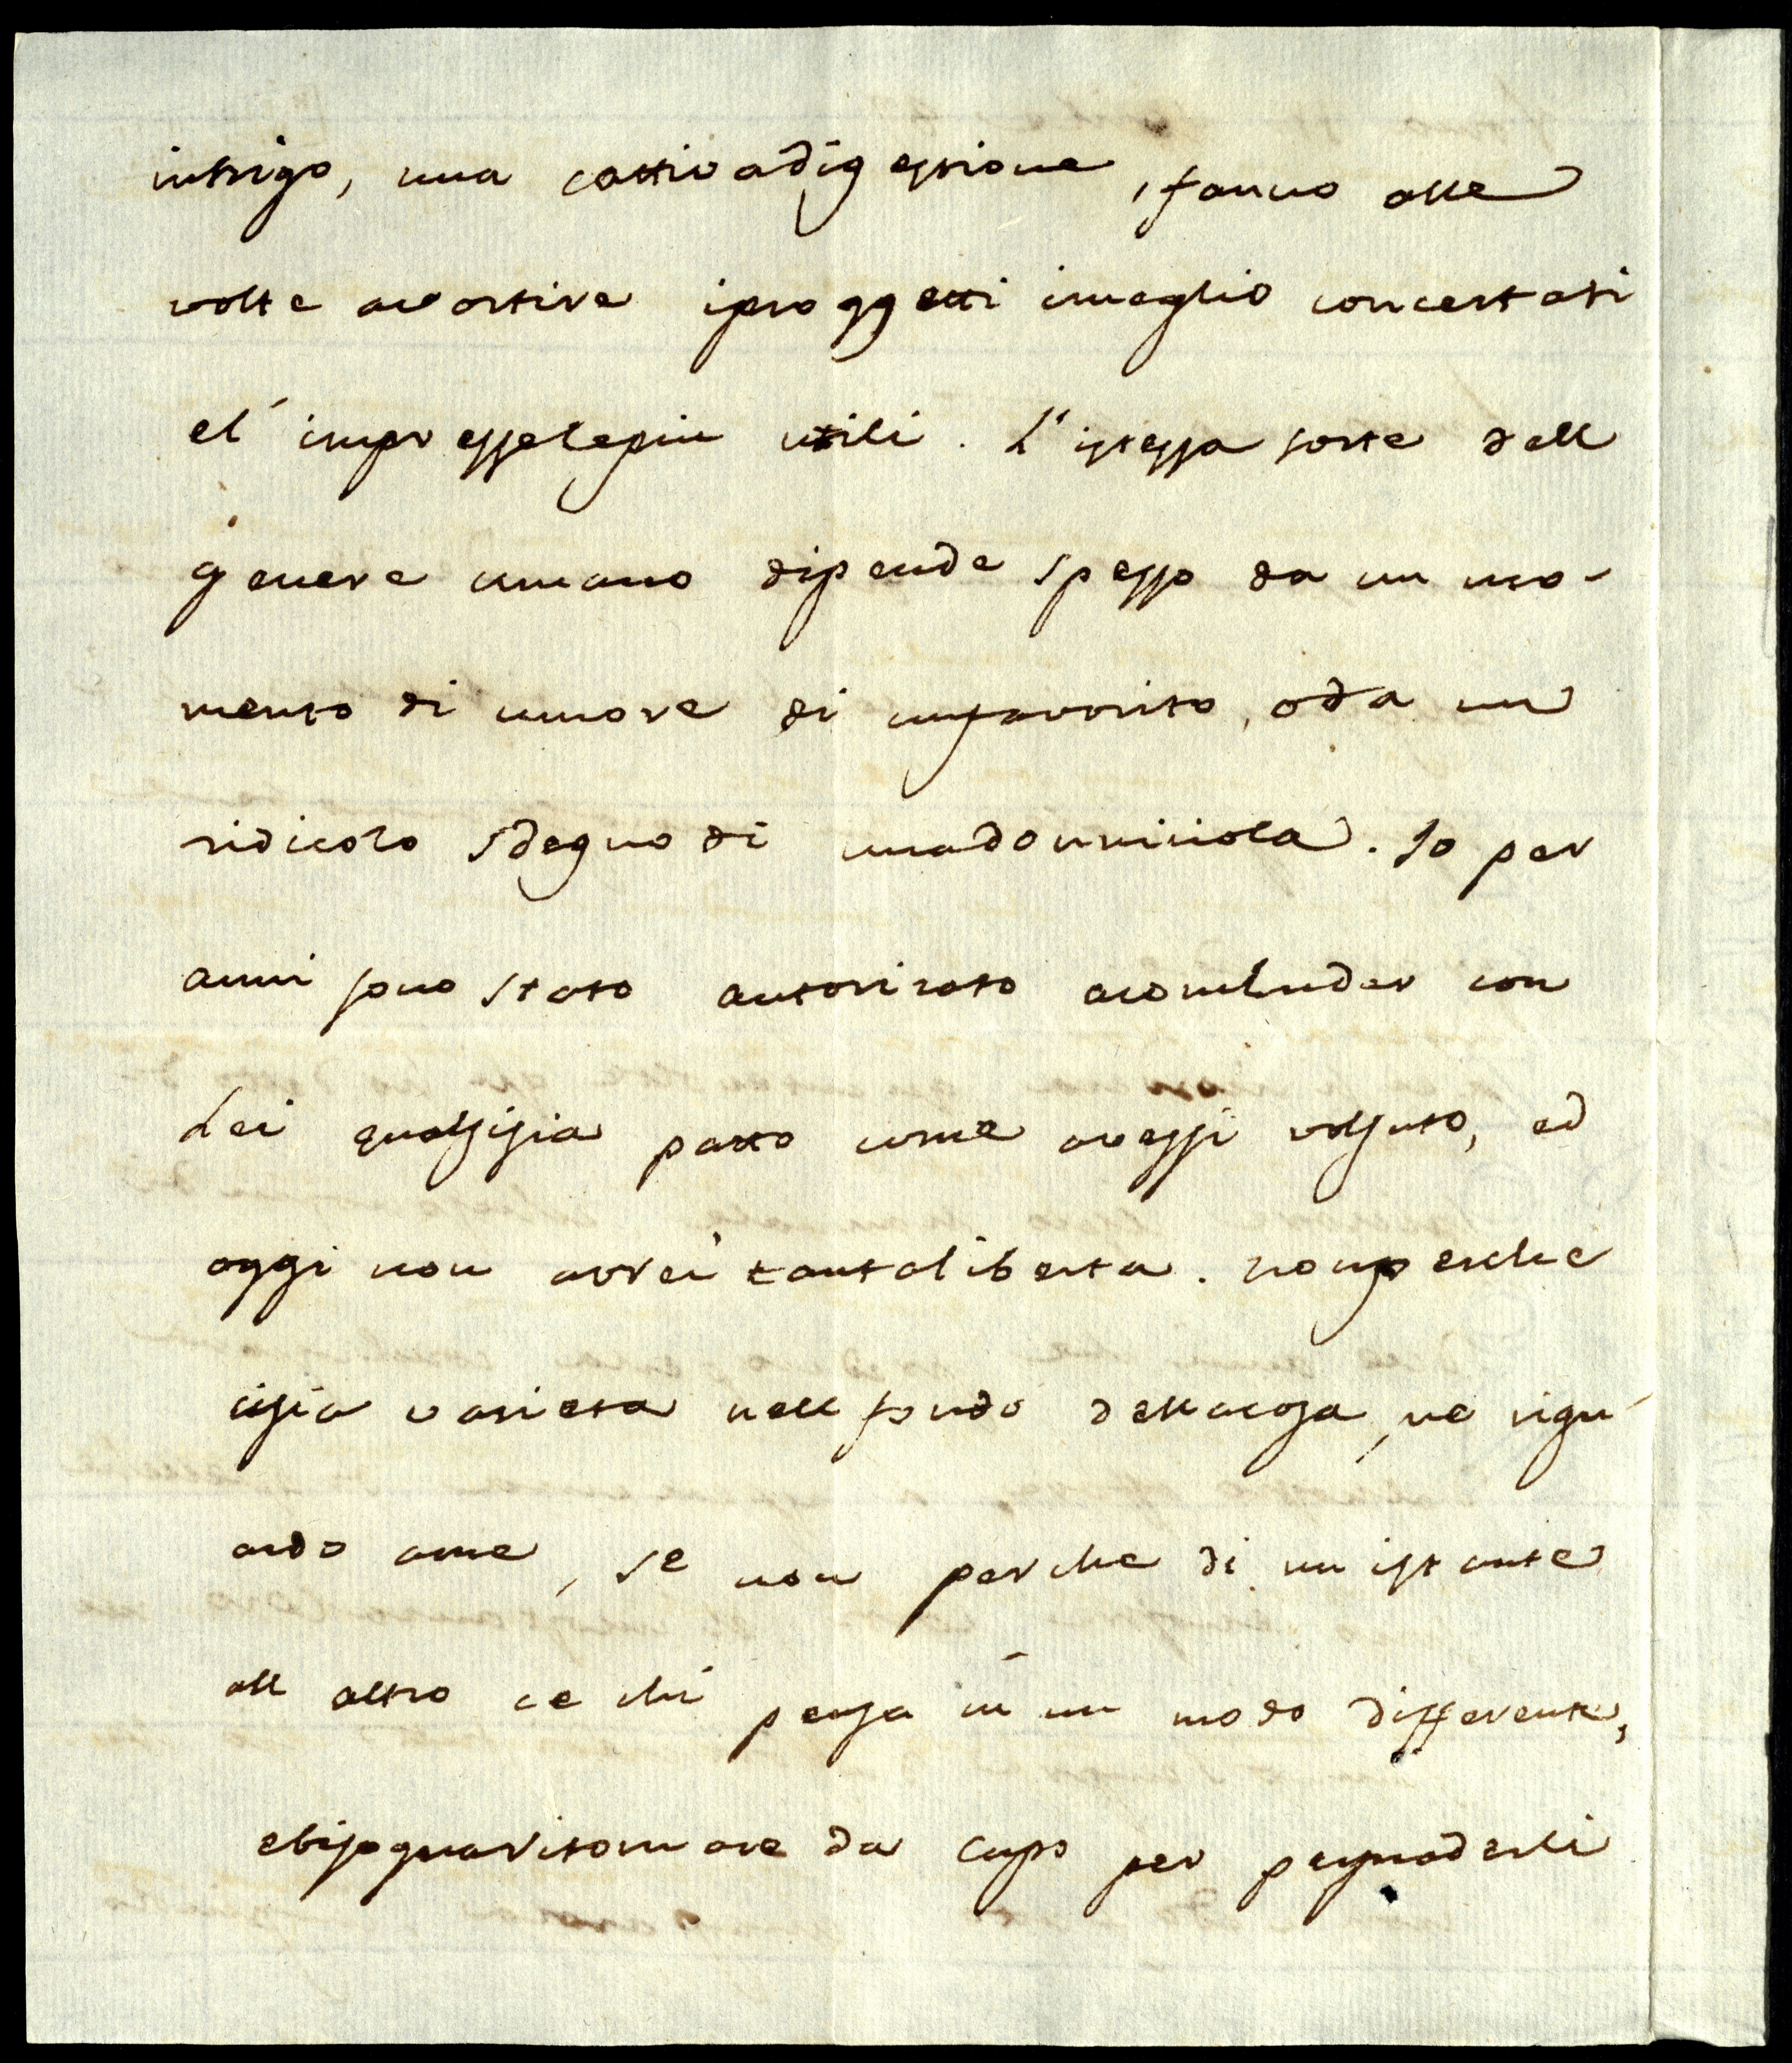 intrigo, una cattivadigestione, fanno alle
volte avortire iproggetti imeglio concertati
el' impresselepiu utili. L'istessa sorte dell
genere umano dipende spesso da un mo-
mento di umore di unfavorito, oda un
ridicolo sdegno di unadonniciola. Io per
anni sono stato autorizato aconchiuder con
Lei qualsisia patto come avessi volsuto, ed
oggi non avrei tantaliberta. nonperche
cisia varieta nell fondo dellacosa, ne rigu-
ardo ame, se non perche di un istante
all altro ce chi pensa in un modo differente,
ebisognaritornare da capo per persuaderli